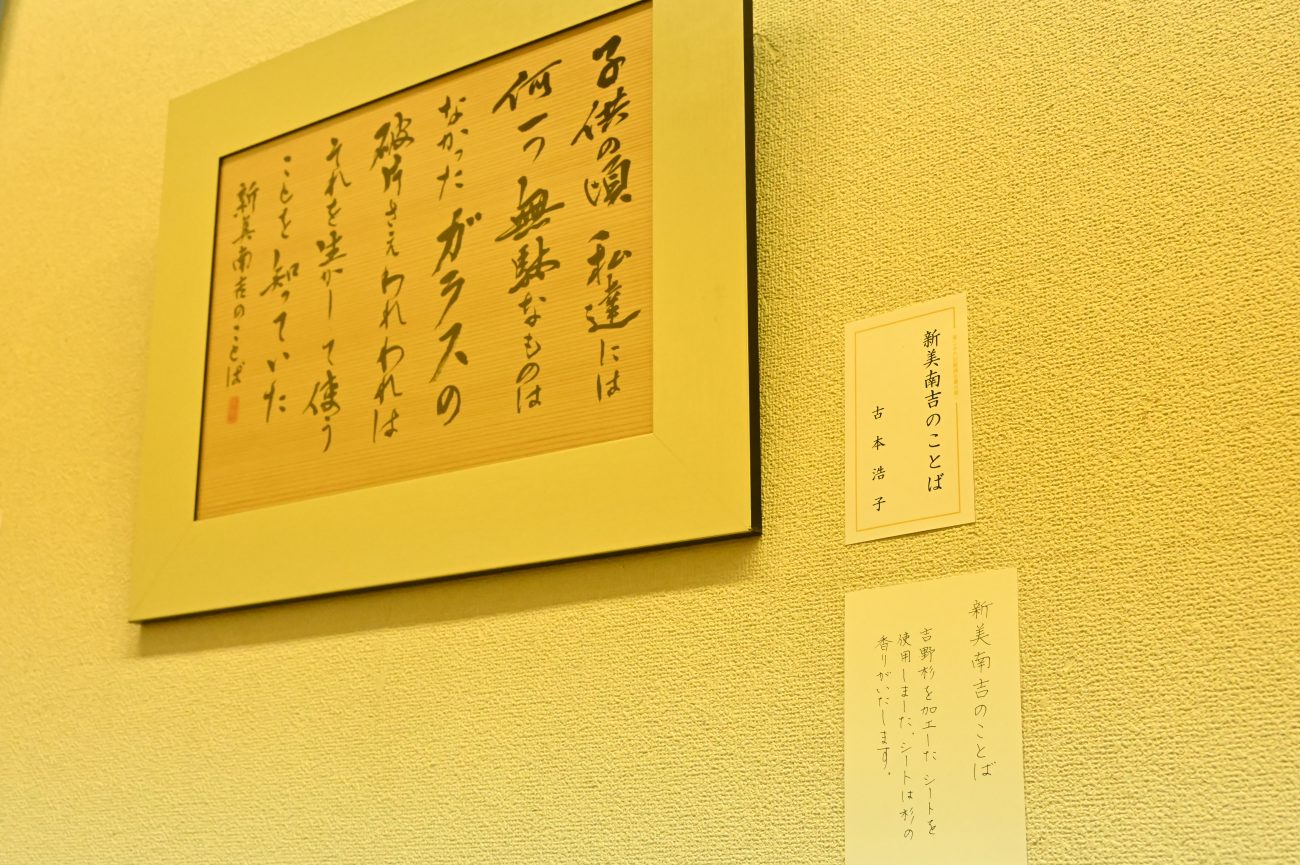 子供の頃 私達には
何一つ無駄なものは
なかった ガラスの
破片さえわれわれは
それを生かして使う
ことを知っていた
新美南吉のことば
新美南吉のことば
古本浩子
新美南吉のことば
吉野杉を加工した シートを
使用しました。シートは杉の
香りがいたします。